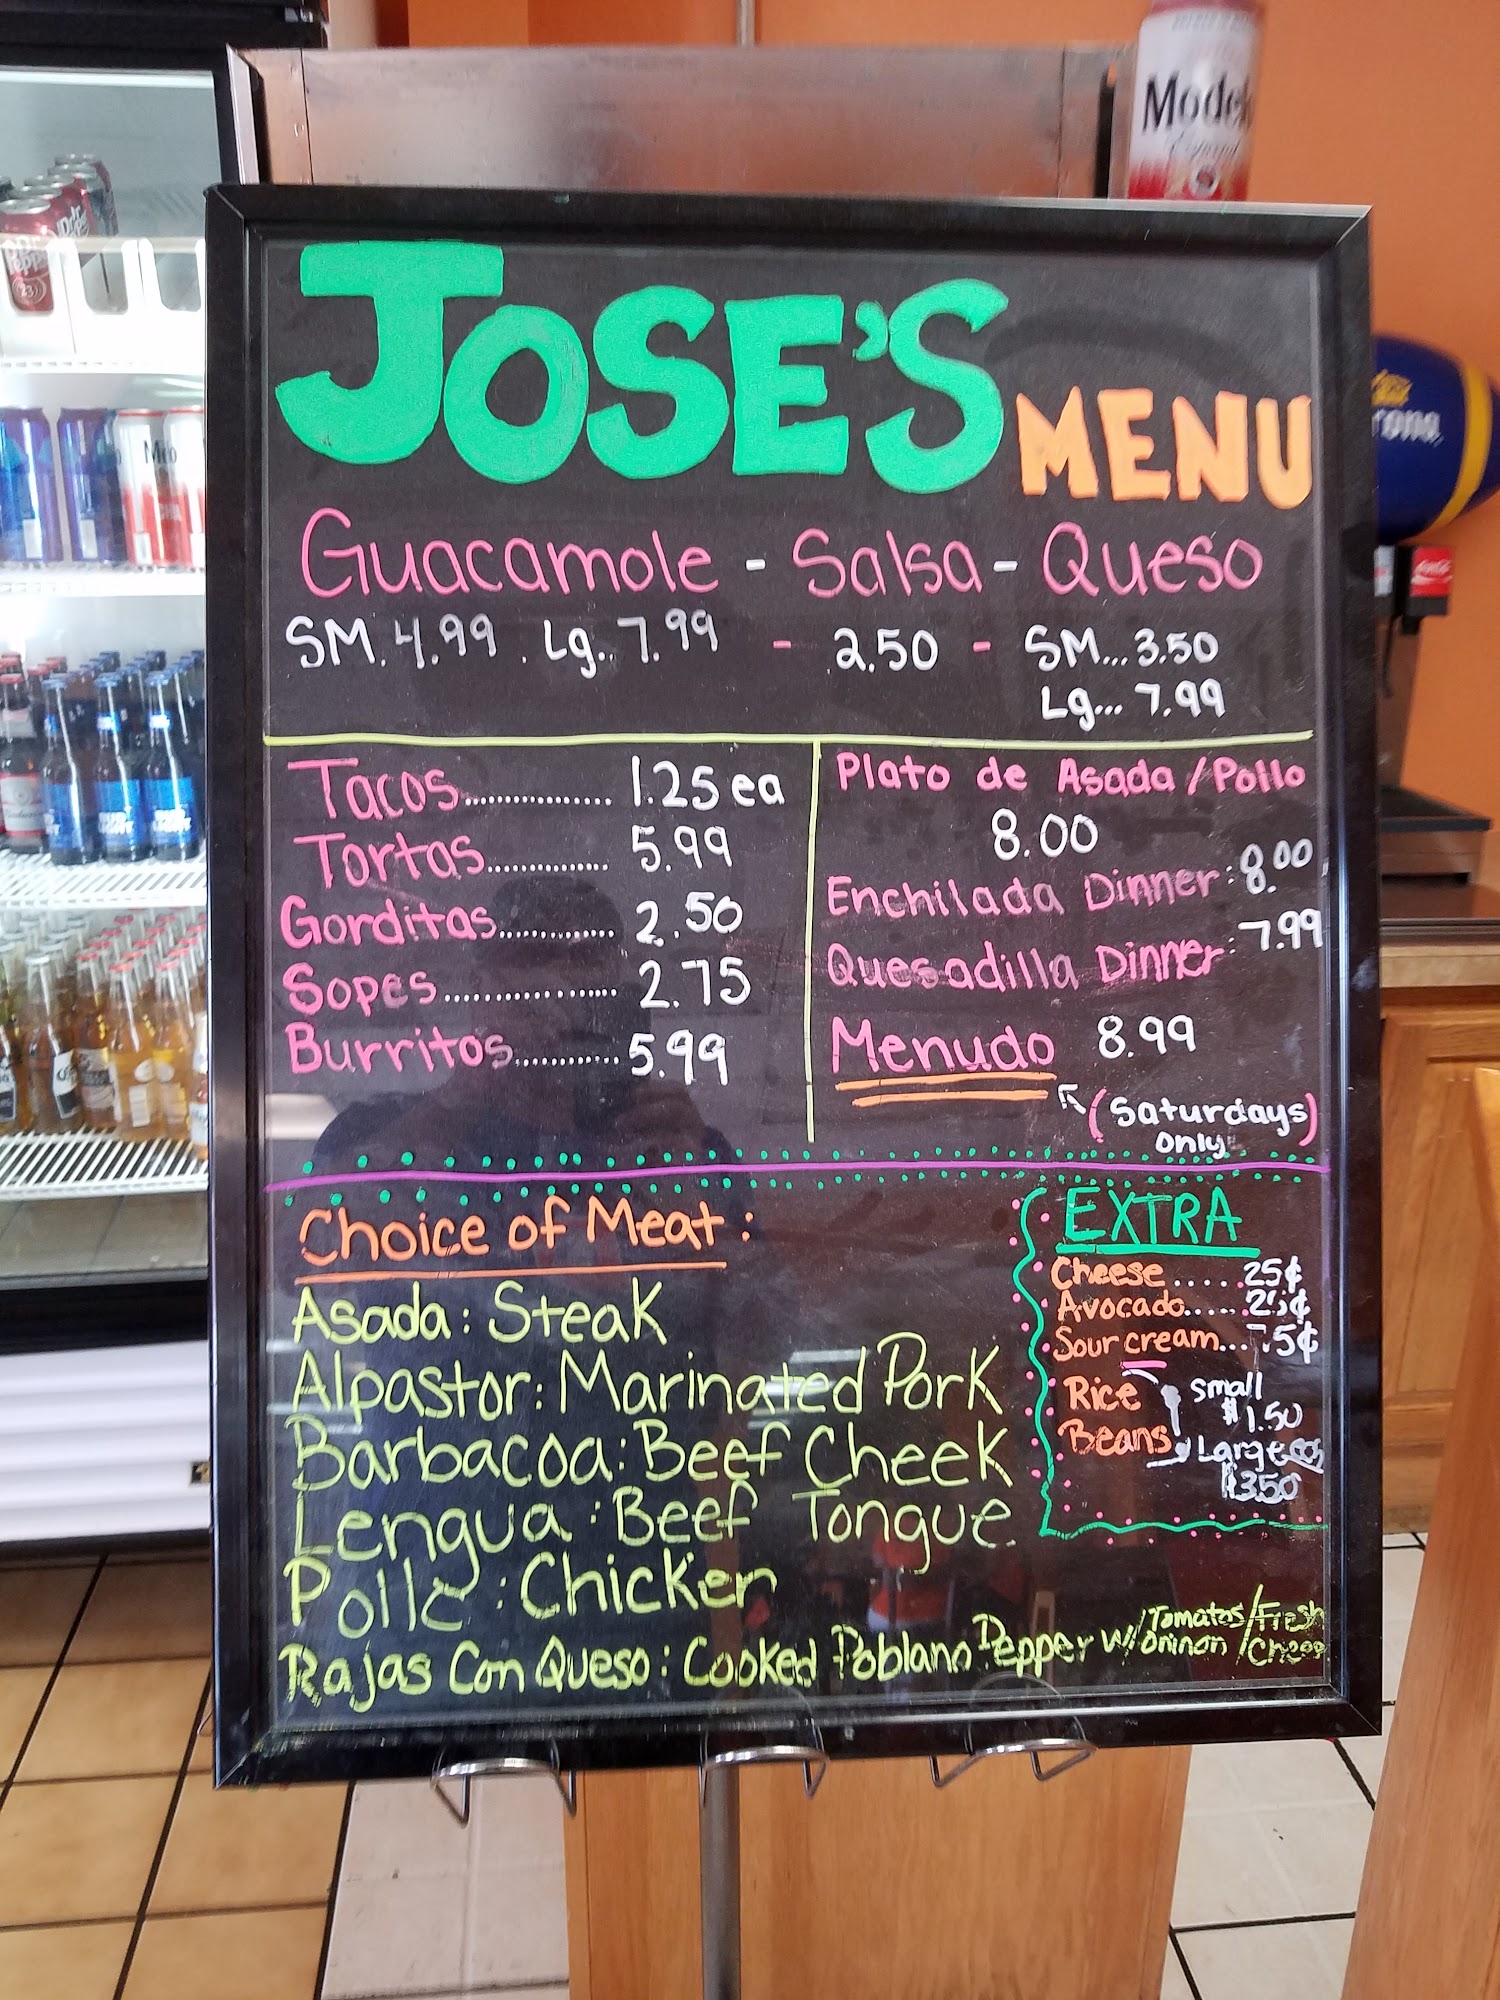 Modelo
Especial
Dr
Pepper
23
rona
BUD
LIGHT
JOSE'S MENU
Guacamole - Salsa - Queso
SM. 4.99 . Lg.. 7.99 - 2.50 - SM... 3.50
Lg... 7.99
Tacos............... 1.25 ea
Tortas............. 5.99
Gorditas............ 2.50
Sopes.................. 2.75
Burritos........... 5.99
Plato de Asada / Pollo
8.00
Enchilada Dinner: 8.00
Quesadilla Dinner: 7.99
Menudo 8.99
(Saturdays)
only
Choice of Meat:
Asada: Steak
Alpastor: Marinated Pork
Barbacoa: Beef Cheek
Lengua: Beef Tongue
Pollo: Chicken
Rajas Con Queso: Cooked Poblano Pepper w/ Tomatos/ Oninon / Fresh Cheese
EXTRA
Cheese..... .25¢
Avocado.....
Sour cream... .75¢
Rice small
$1.50
Beans Large
$3.50